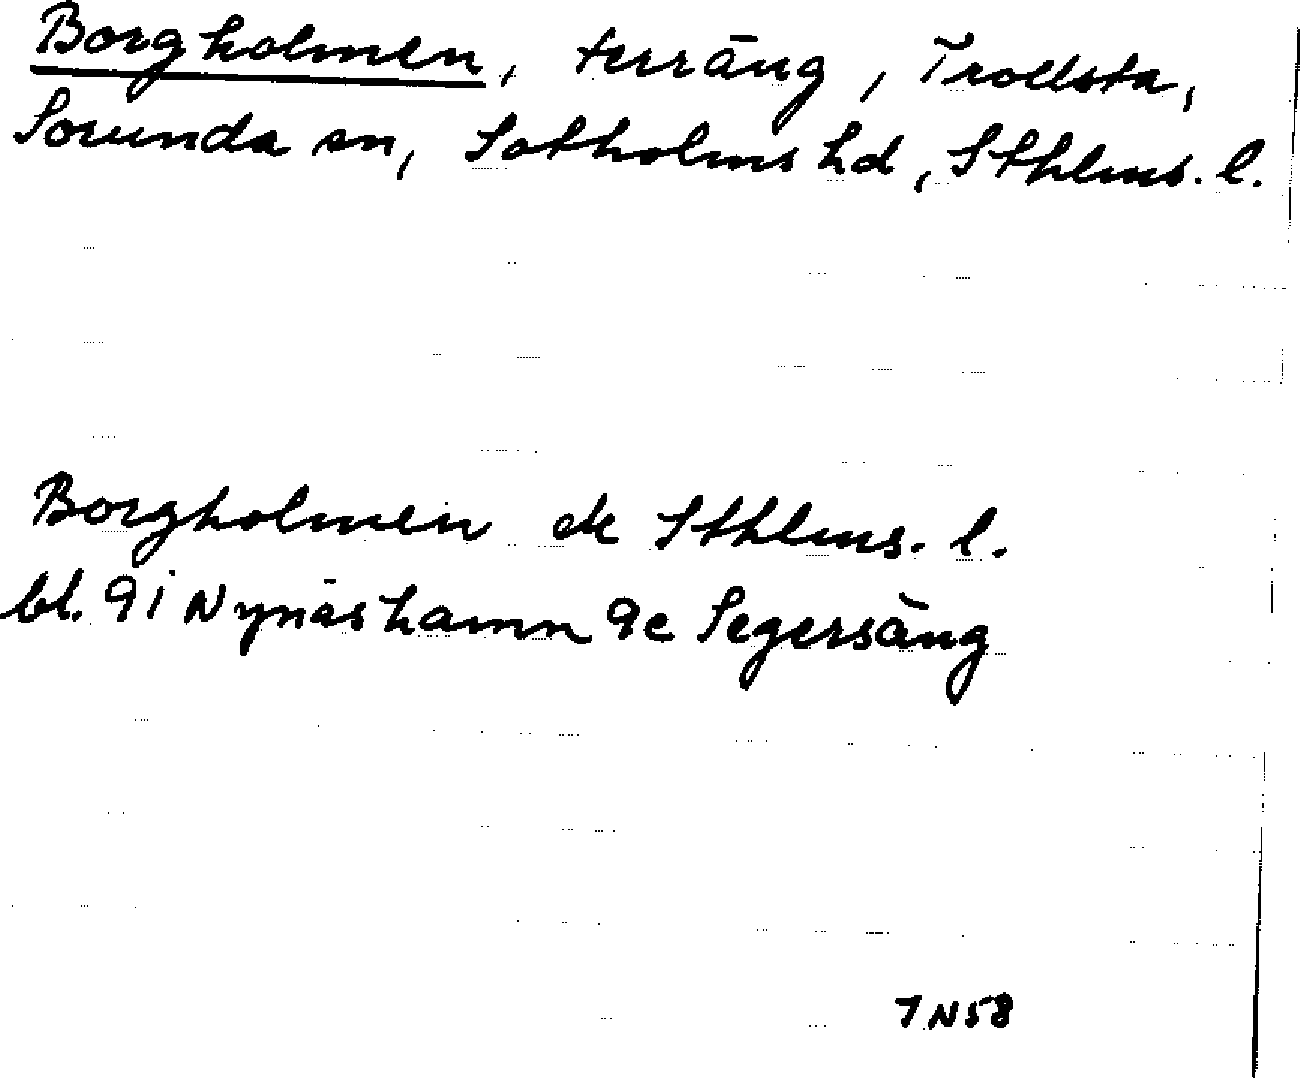 Borgholmen, terräng, Trollsta,
Sorunda sn, Sotholms hd, Sthlms. l.
Borgholmen ek Sthlms. l.
bl. 9i Nynäshamn 9c Segersäng
7N58